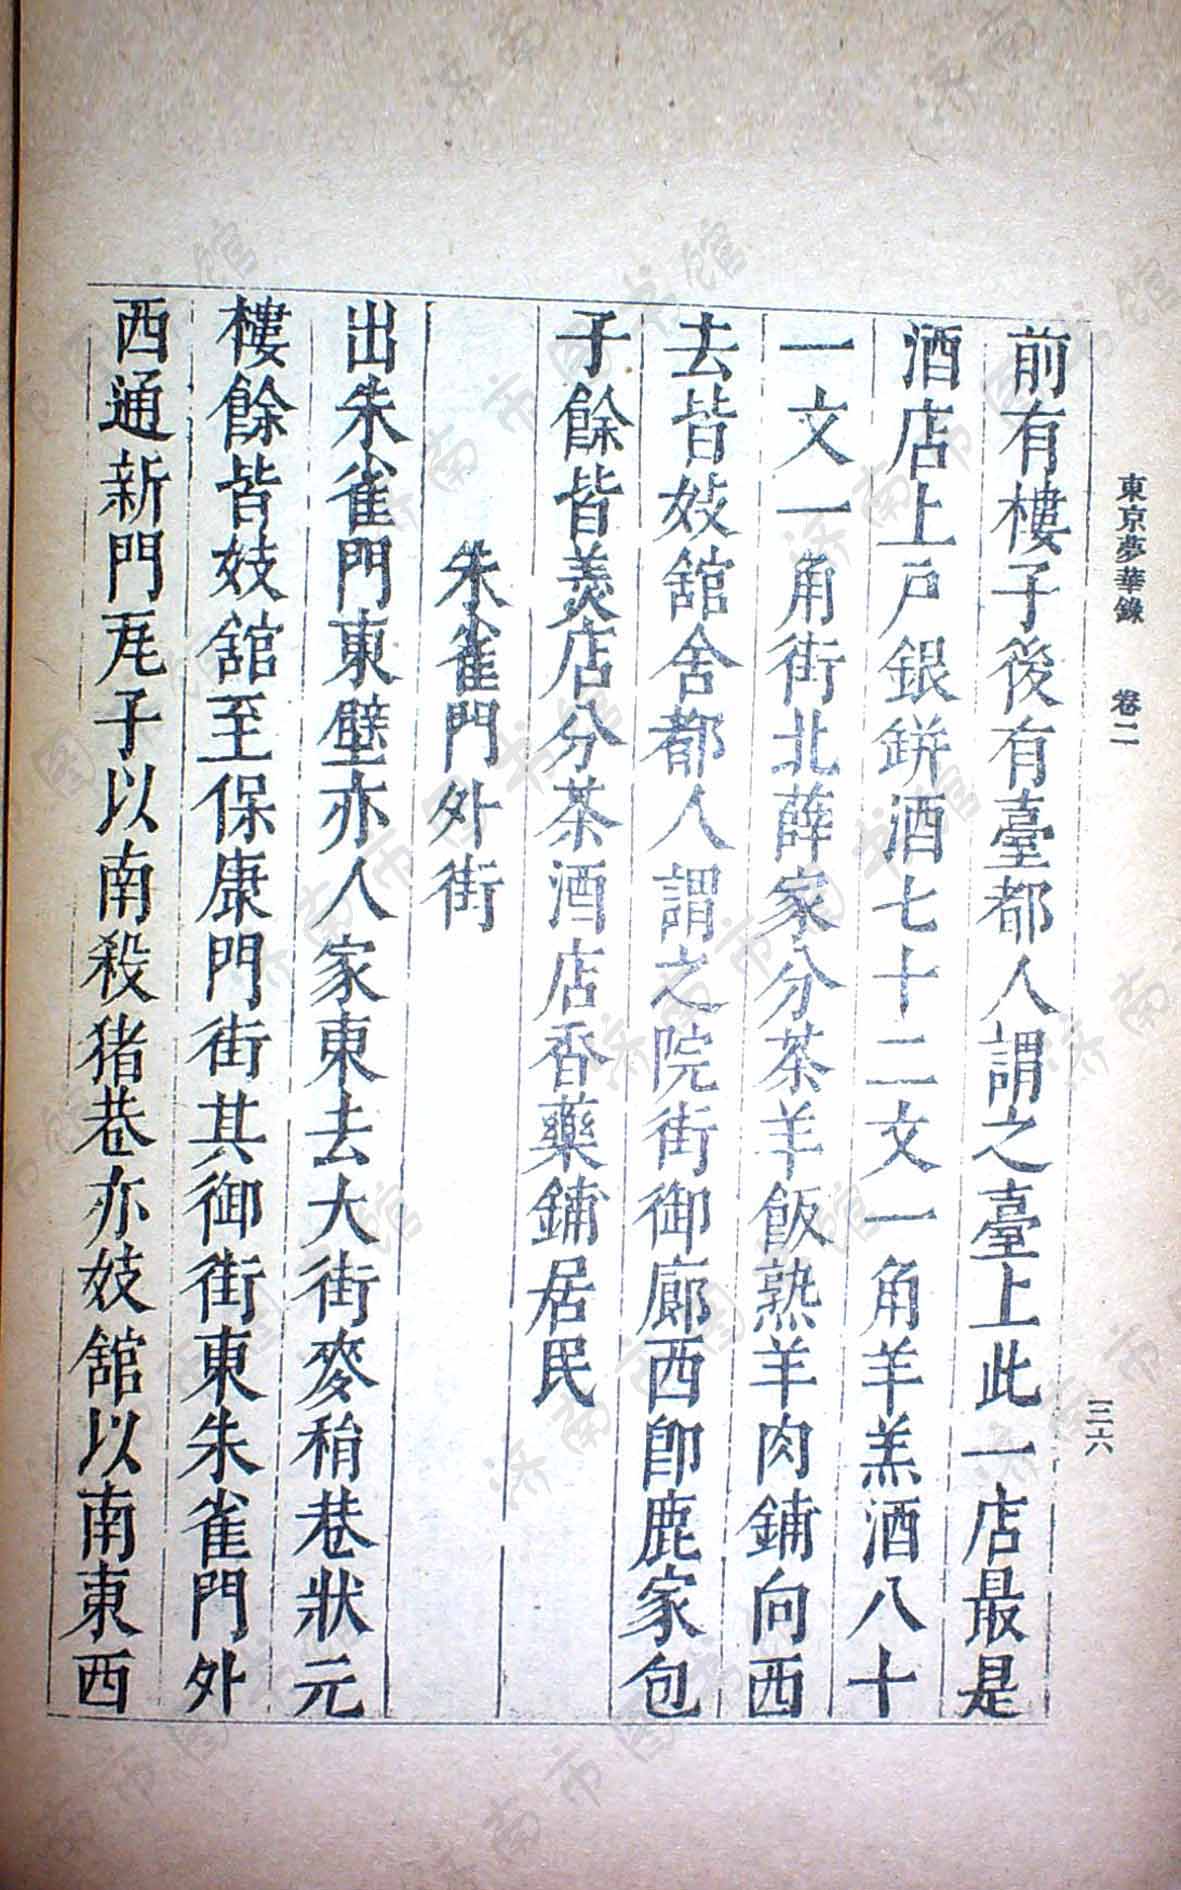 東京夢華錄 卷二 三六
前有樓子後有臺都人謂之臺上此一店最是
酒店上戶銀鉼酒七十二文一角羊羔酒八十
一文一角街北薛家分茶羊飯熟羊肉鋪向西
去皆妓舘舍都人謂之院街御廊西卽鹿家包
子餘皆羹店分茶酒店香藥鋪居民
朱雀門外街
出朱雀門東壁亦人家東去大街麥稍巷狀元
樓餘皆妓舘至保康門街其御街東朱雀門外
西通新門瓦子以南殺猪巷亦妓舘以南東西
济南市图书馆